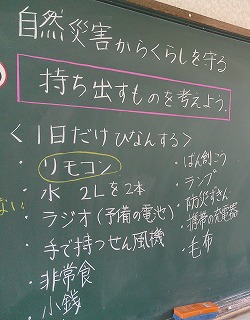 自然災害からくらしを守る
持ち出すものを考えよう。
<1日だけひなんする>
・リモコン
・水 2Lを2本
・ラジオ(予備の電池)
・手で持つせん風機
・非常食
・小銭
・ばん創こう
・ランプ
・防災ずきん
・携帯の充電器
・毛布
ない